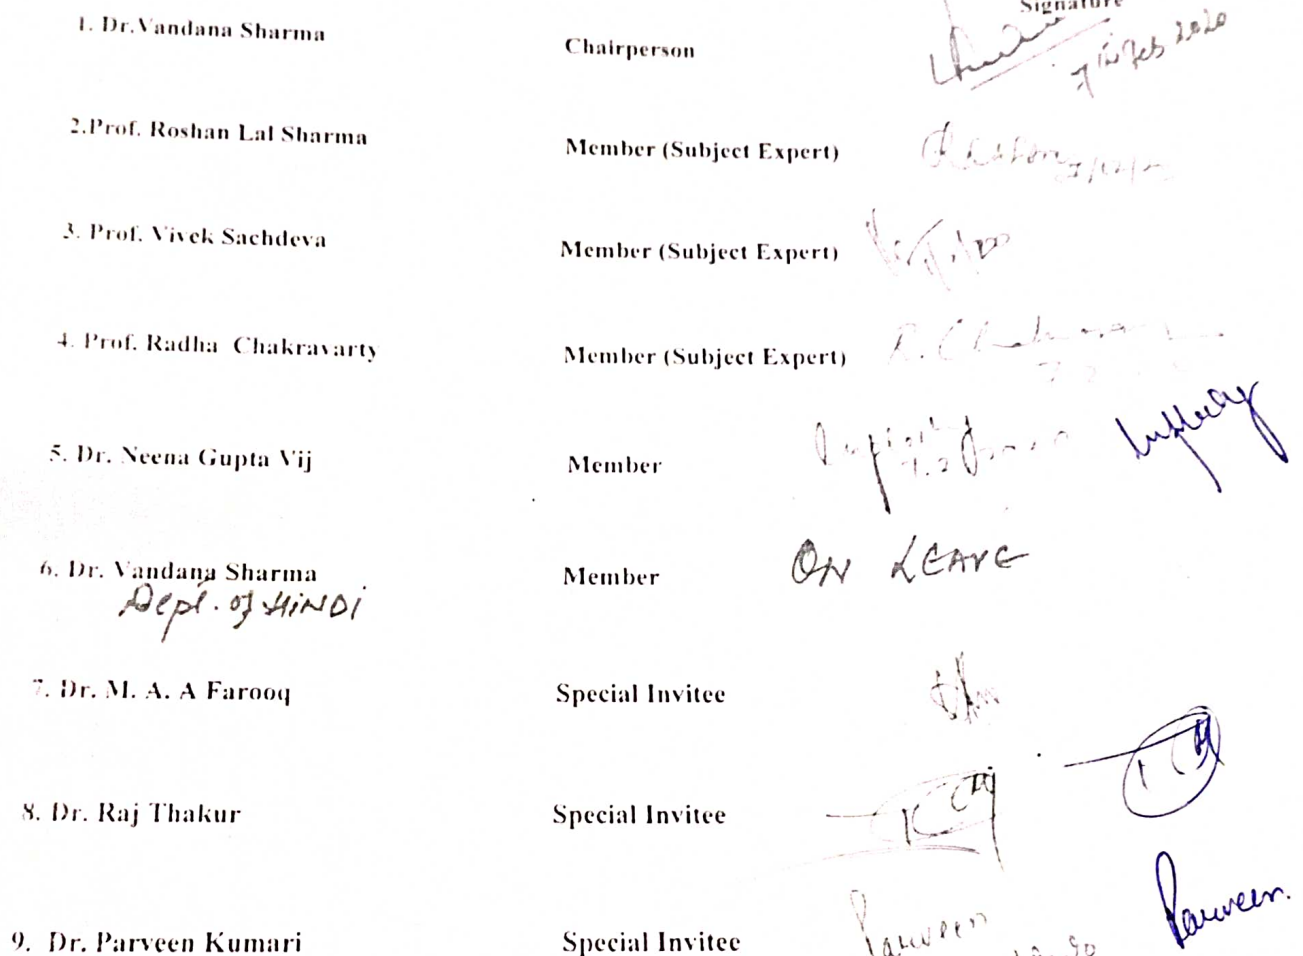 Signature
1. Dr.Vandana Sharma Chairperson 7th Feb 2020
2.Prof. Roshan Lal Sharma Member (Subject Expert)
3. Prof. Vivek Sachdeva Member (Subject Expert)
4. Prof. Radha Chakravarty Member (Subject Expert) R. Chakravarty
5. Dr. Neena Gupta Vij Member
6. Dr. Vandana Sharma Member ON LEAVE
Dept. of HINDI
7. Dr. M. A. A Farooq Special Invitee
8. Dr. Raj Thakur Special Invitee
9. Dr. Parveen Kumari Special Invitee Parveen Parveen.